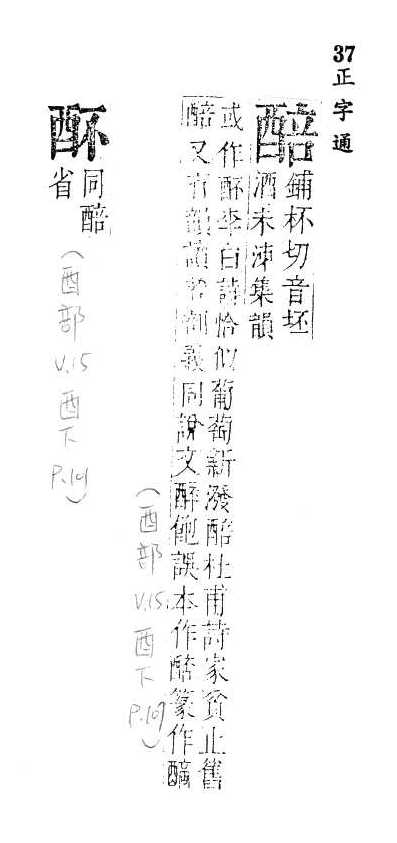 37正字通
醅
鋪杯切音坯
酒未泲集韻
或作酥李白詩恰似葡萄新潑醅杜甫詩家貧止舊
醅又有韻 義同說文醉飽誤本作醅篆作
酥
同醅
省
(酉部 V.15 酉下 P.109)
(酉部 V.15 酉下 P.109)